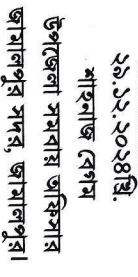 ২৯.১২.২০২৪খ্রি.
শাহনাজ বেগম
উপজেলা সমবায় অফিসার
জামালপুর সদর, জামালপুর।